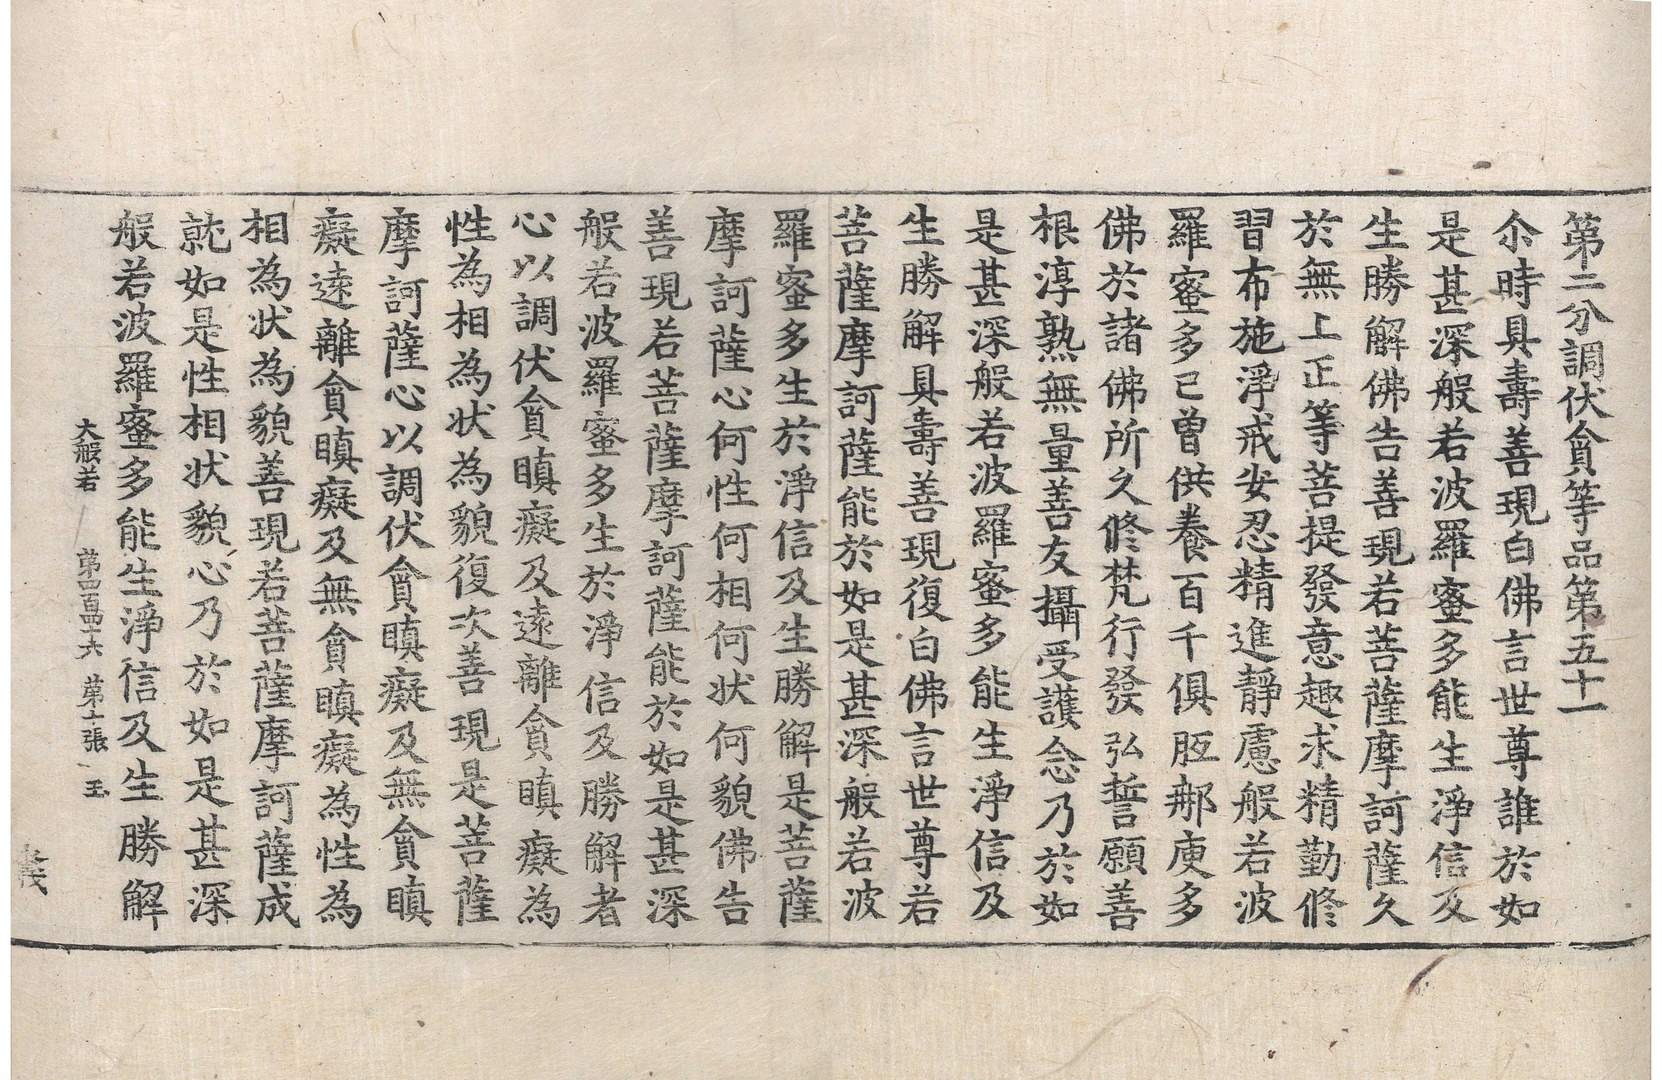 第二分調伏貪等品第五十一
尒時具壽善現白佛言世尊誰於如
是甚深般若波羅蜜多能生淨信及
生勝解佛告善現若菩薩摩訶薩久
於無上正等菩提發意趣求精勤修
習布施淨戒安忍精進靜慮般若波
羅蜜多已曾供養百千俱胝那庾多
佛於諸佛所久修梵行發弘誓願善
根淳熟無量善友攝受護念乃於如
是甚深般若波羅蜜多能生淨信及
生勝解具壽善現復白佛言世尊若
菩薩摩訶薩能於如是甚深般若波
羅蜜多生於淨信及生勝解是菩薩
摩訶薩心何性何相何狀何貌佛告
善現若菩薩摩訶薩能於如是甚深
般若波羅蜜多生於淨信及勝解者
心以調伏貪瞋癡及遠離貪瞋癡為
性為相為狀為貌復次善現是菩薩
摩訶薩心以調伏貪瞋癡及無貪瞋
癡遠離貪瞋癡及無貪瞋癡為性為
相為狀為貌善現若菩薩摩訶薩成
就如是性相狀貌心乃於如是甚深
般若波羅蜜多能生淨信及生勝解
大般若 第四百四十六 第十張 玉